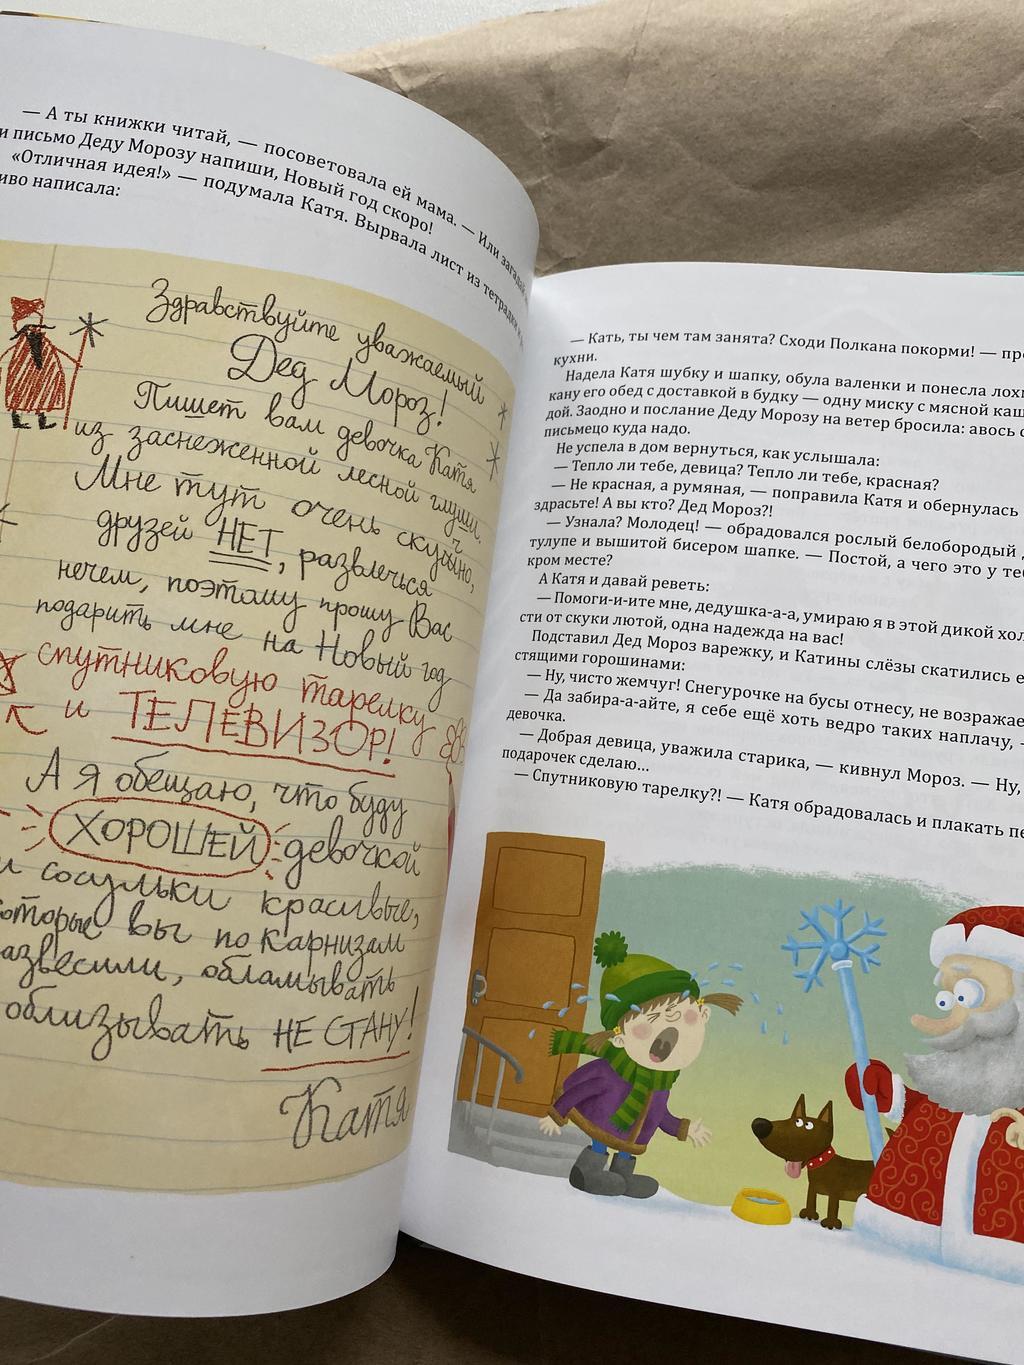 — А ты книжки читай, — посоветовала ей мама. — Или загадай
и письмо Деду Морозу напиши, Новый год скоро!
«Отличная идея!» — подумала Катя. Вырвала лист из тетрадки и
иво написала:
Здравствуйте уважаемый
Дед Мороз!
Пишет вам девочка Катя
из заснеженной лесной глуши.
Мне тут очень скучно,
друзей НЕТ, развлечься
нечем, поэтому прошу Вас
подарить мне на Новый год
спутниковую тарелку
и ТЕЛЕВИЗОР!
А я обещаю, что буду
ХОРОШЕЙ девочкой
и сосульки красивые,
которые вы по карнизам
азвесили, обламывать
облизывать НЕ СТАНУ!
Катя
— Кать, ты чем там занята? Сходи Полкана покорми! — пр
кухни.
Надела Катя шубку и шапку, обула валенки и понесла лох
кану его обед с доставкой в будку — одну миску с мясной каш
дой. Заодно и послание Деду Морозу на ветер бросила: авось
письмецо куда надо.
Не успела в дом вернуться, как услышала:
— Тепло ли тебе, девица? Тепло ли тебе, красная?
— Не красная, а румяная, — поправила Катя и обернулась
здрасьте! А вы кто? Дед Мороз?!
— Узнала? Молодец! — обрадовался рослый белобородый
тулупе и вышитой бисером шапке. — Постой, а чего это у те
кром месте?
А Катя и давай реветь:
— Помоги-и-ите мне, дедушка-а-а, умираю я в этой дикой хол
сти от скуки лютой, одна надежда на вас!
Подставил Дед Мороз варежку, и Катины слёзы скатились
стящими горошинами:
— Ну, чисто жемчуг! Снегурочке на бусы отнесу, не возражае
— Да забира-а-айте, я себе ещё хоть ведро таких наплачу, —
девочка.
— Добрая девица, уважила старика, — кивнул Мороз. — Ну,
подарочек сделаю...
— Спутниковую тарелку?! — Катя обрадовалась и плакать пе